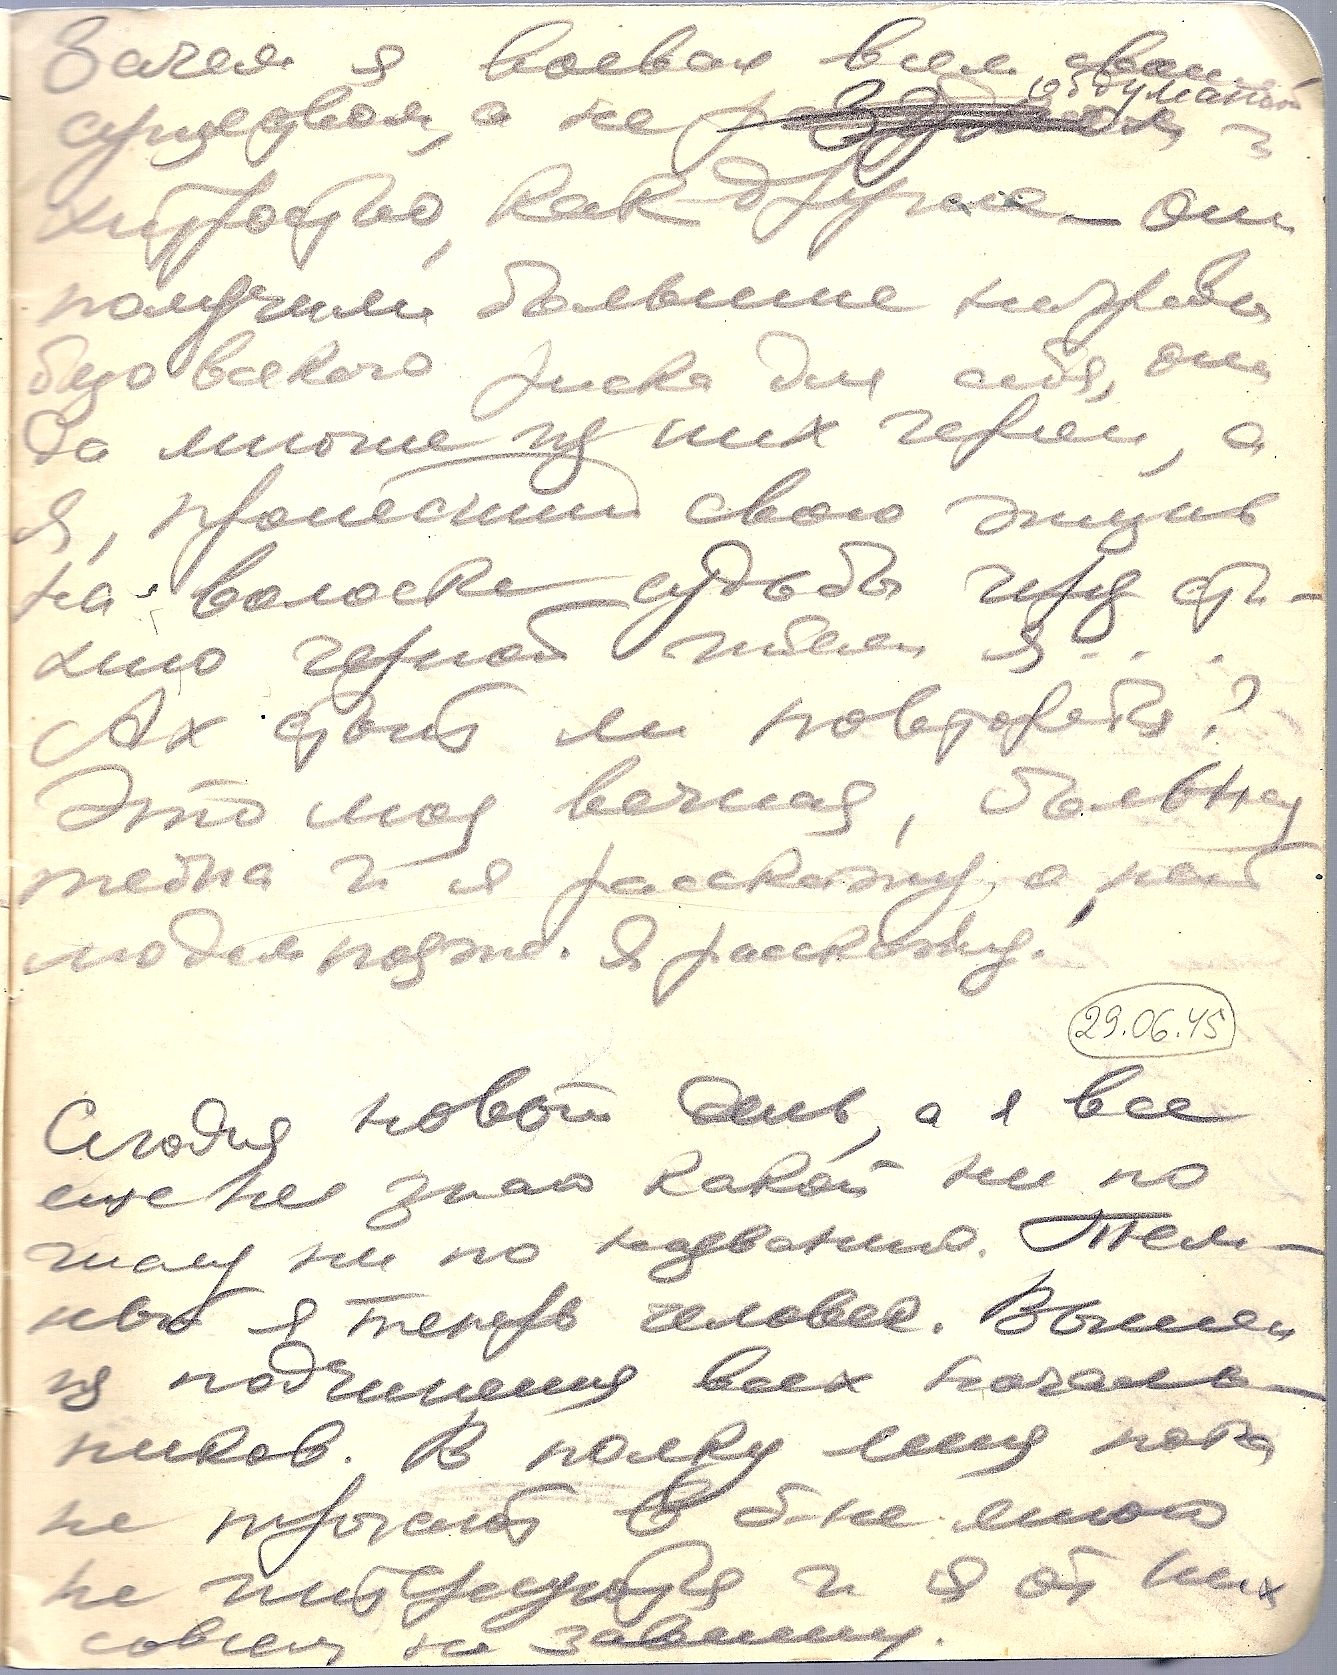 Зачем я воевал всем своим
существом, а не обдуманной
хитростью, как другие – они
получили большие награды
безо всякого риска для себя, они
да многие из них герои, а
я, пронесший свою жизнь
на волоске судьбы
чем я...
Ах стоит ли повторяться?
Это моя вечная, больная
и я расскажу о ней
людям позже. Я расскажу!
29.06.45
Сегодня новый день, а я все
еще не знаю какой ни по
числу ни по названию. Тем-
ный я теперь человек. Вышел
из подчинения всех началь-
ников. В полку меня пока
не трогают в б-не мною
не интересуются и я от них
совсем не завишу.